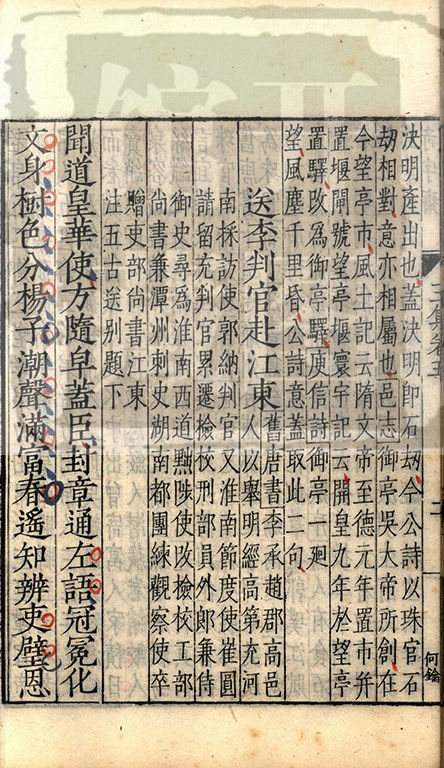 決明產出也蓋決明即石刧今公詩以珠官石
刧相對意亦相屬也邑志御亭吳大帝所創在
今望亭市風土記云隋文帝至德元年置市幷
置堰閘號望亭堰寰宇記云開皇九年於望亭
置驛改爲御亭驛庾信詩御亭一廻
望風塵千里昏公詩意蓋取此二句
送李判官赴江東
舊唐書李承趙郡高邑
人以舉明經高第充河
南採訪使郭納判官又淮南節度使崔圓
請留充判官累遷檢校刑部員外郎兼侍
御史尋爲淮南西道黜陟使改檢校工部
尚書兼潭州刺史湖南都團練觀察使卒
贈吏部尚書江東
注五古送别題下
聞道皇華使方隨皁蓋臣封章通左語冠冕化
文身樹色分楊子潮聲滿富春遙知辨吏璧恩